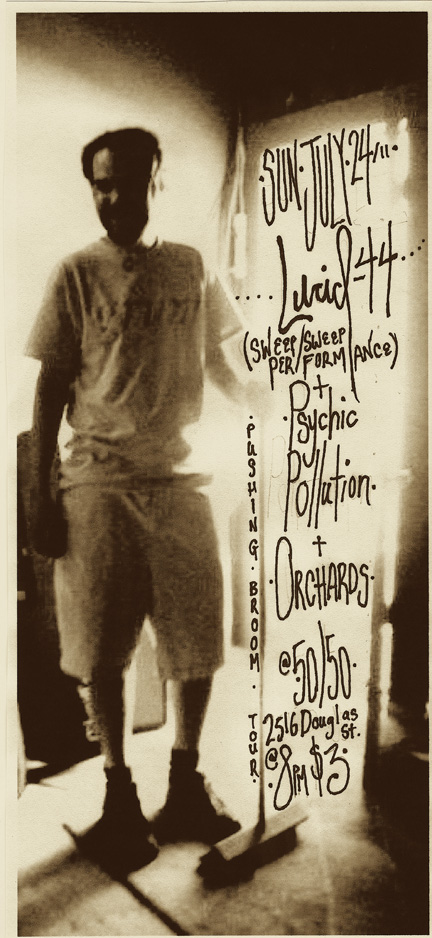 ·SUN·JULY·24/11·
....Lucid-44....
(SWEEP/SWEEP
PER/FORM/ANCE)
+
Psychic
Pollution·
+
·ORCHARDS·
@50/50·
2516 Douglas
st.
@8PM $3·
·PUSHING·BROOM·
TOUR·